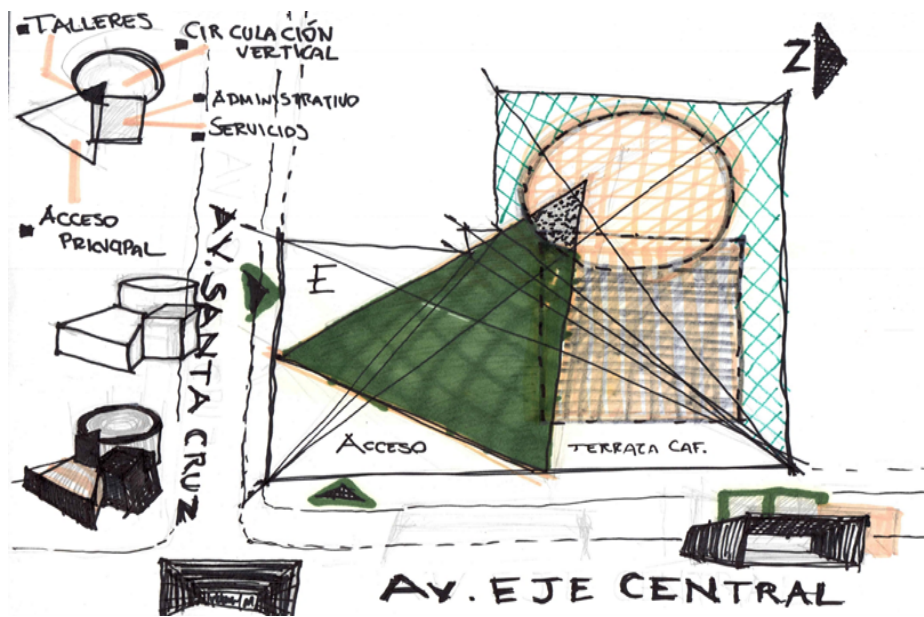 TALLERES
CIRCULACIÓN
VERTICAL
ADMINISTRATIVO
SERVICIOS
ACCESO
PRINCIPAL
AV. SANTA CRUZ
N
E
ACCESO
TERRAZA CAF.
AV. EJE CENTRAL